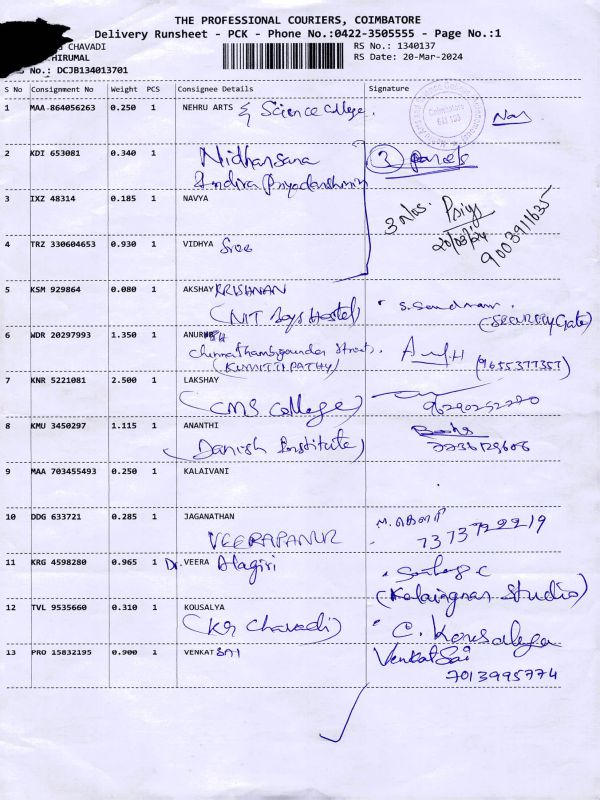 THE PROFESSIONAL COURIERS, COIMBATORE
Delivery Runsheet - PCK - Phone No.:0422-3505555 - Page No.:1
CHAVADI RS No.: 1340137
HIRUMAL RS Date: 20-Mar-2024
No.: DCJB134013701
S No Consignment No Weight PCS Consignee Details Signature
1 MAA 864056263 0.250 1 NEHRU ARTS & Science College.
Coimbatore
641 105
2 KDI 653081 0.340 1 Nidharsana 3 parcels
Indira Priyadarshini
3 IXZ 48314 0.185 1 NAVYA 3 Nos. Priya
20/03/24
9003911635
4 TRZ 330604653 0.930 1 VIDHYA Sree
5 KSM 929864 0.080 1 AKSHAY KRISHNAN
(NIT Boys Hostel) (SECURITY Gate)
6 WDR 20297993 1.350 1
Street,
(KUMITTIPATHY) (9655377357)
7 KNR 5221081 2.500 1 LAKSHAY
(CMS College) 96290252280
8 KMU 3450297 1.115 1 ANANTHI
(Danish Institute)
9 MAA 703455493 0.250 1 KALAIVANI
10 DDG 633721 0.285 1 JAGANATHAN
VEERAPANUR 7373722219
11 KRG 4598280 0.965 1 Dr. VEERA Alagiri
(Kalaingnar Studio)
12 TVL 9535660 0.310 1 KOUSALYA
(KG Chavadi) C. Kousalya
13 PRO 15832195 0.900 1 VENKAT SAI Venkat Sai
7013995774